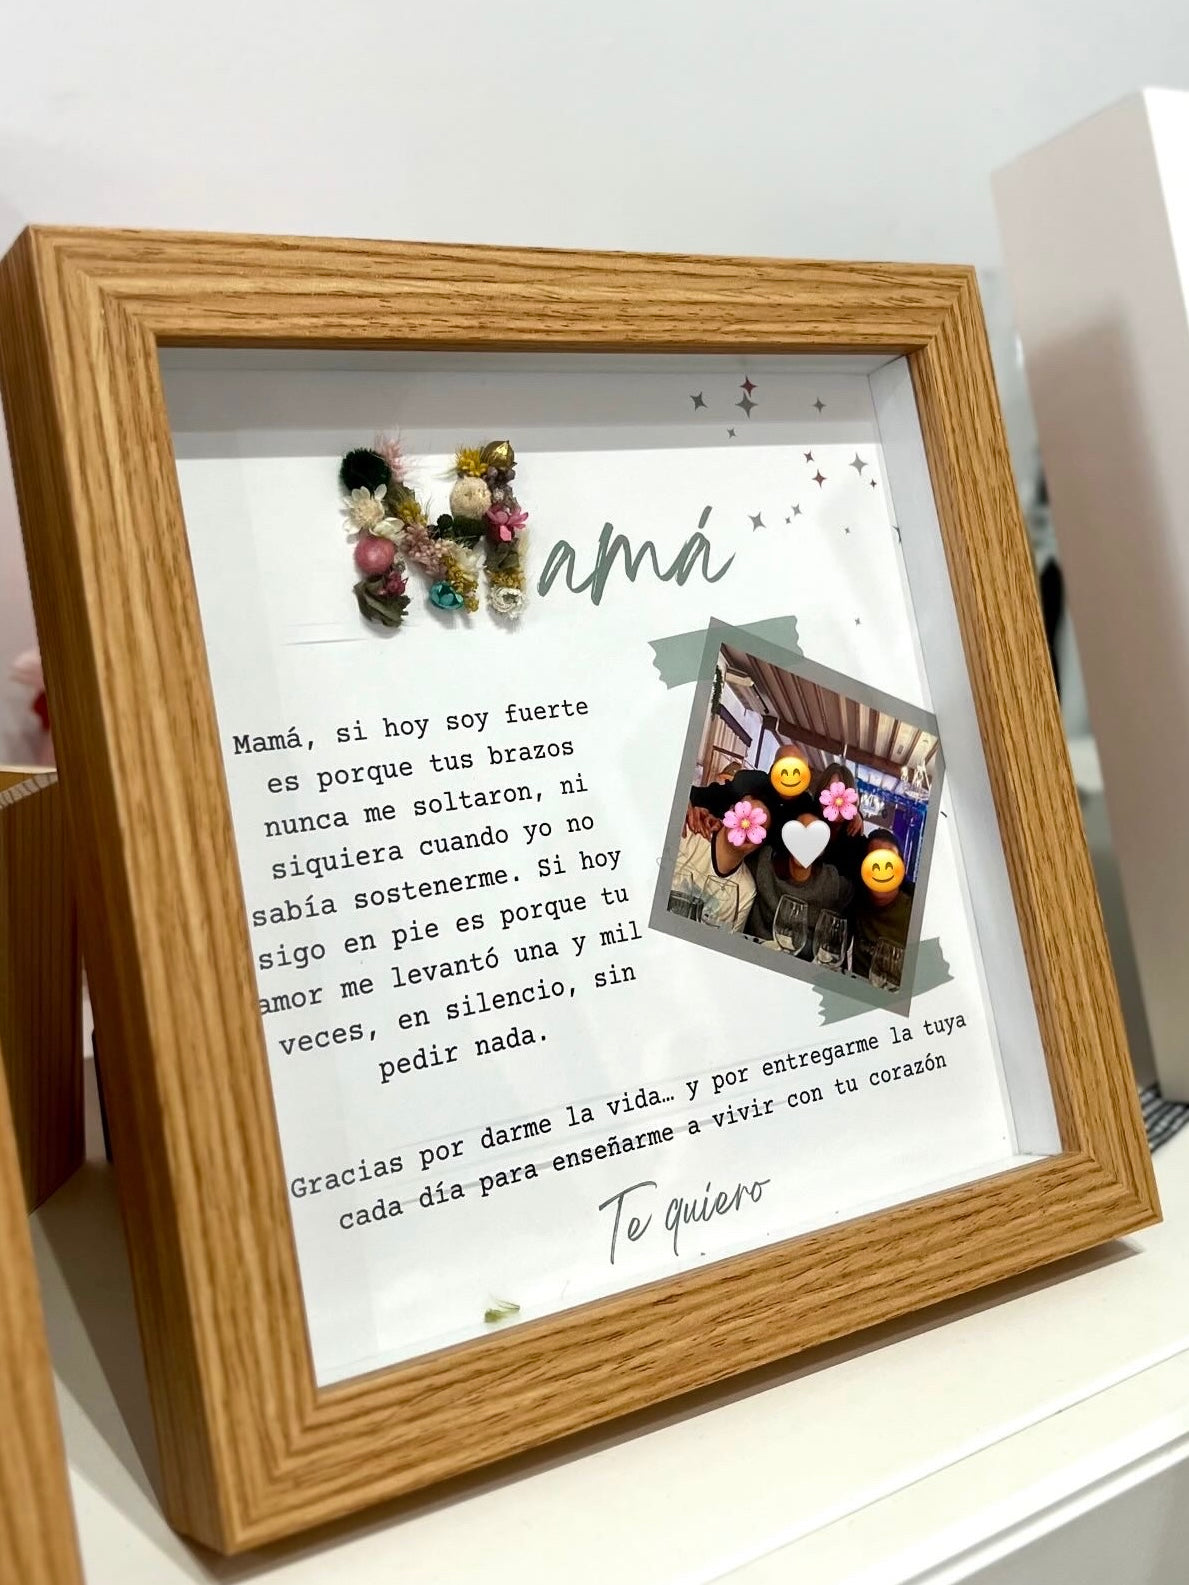 Mamá
Mamá, si hoy soy fuerte
es porque tus brazos
nunca me soltaron, ni
siquiera cuando yo no
sabía sostenerme. Si hoy
sigo en pie es porque tu
amor me levantó una y mil
veces, en silencio, sin
pedir nada.
Gracias por darme la vida… y por entregarme la tuya
cada día para enseñarme a vivir con tu corazón
Te quiero